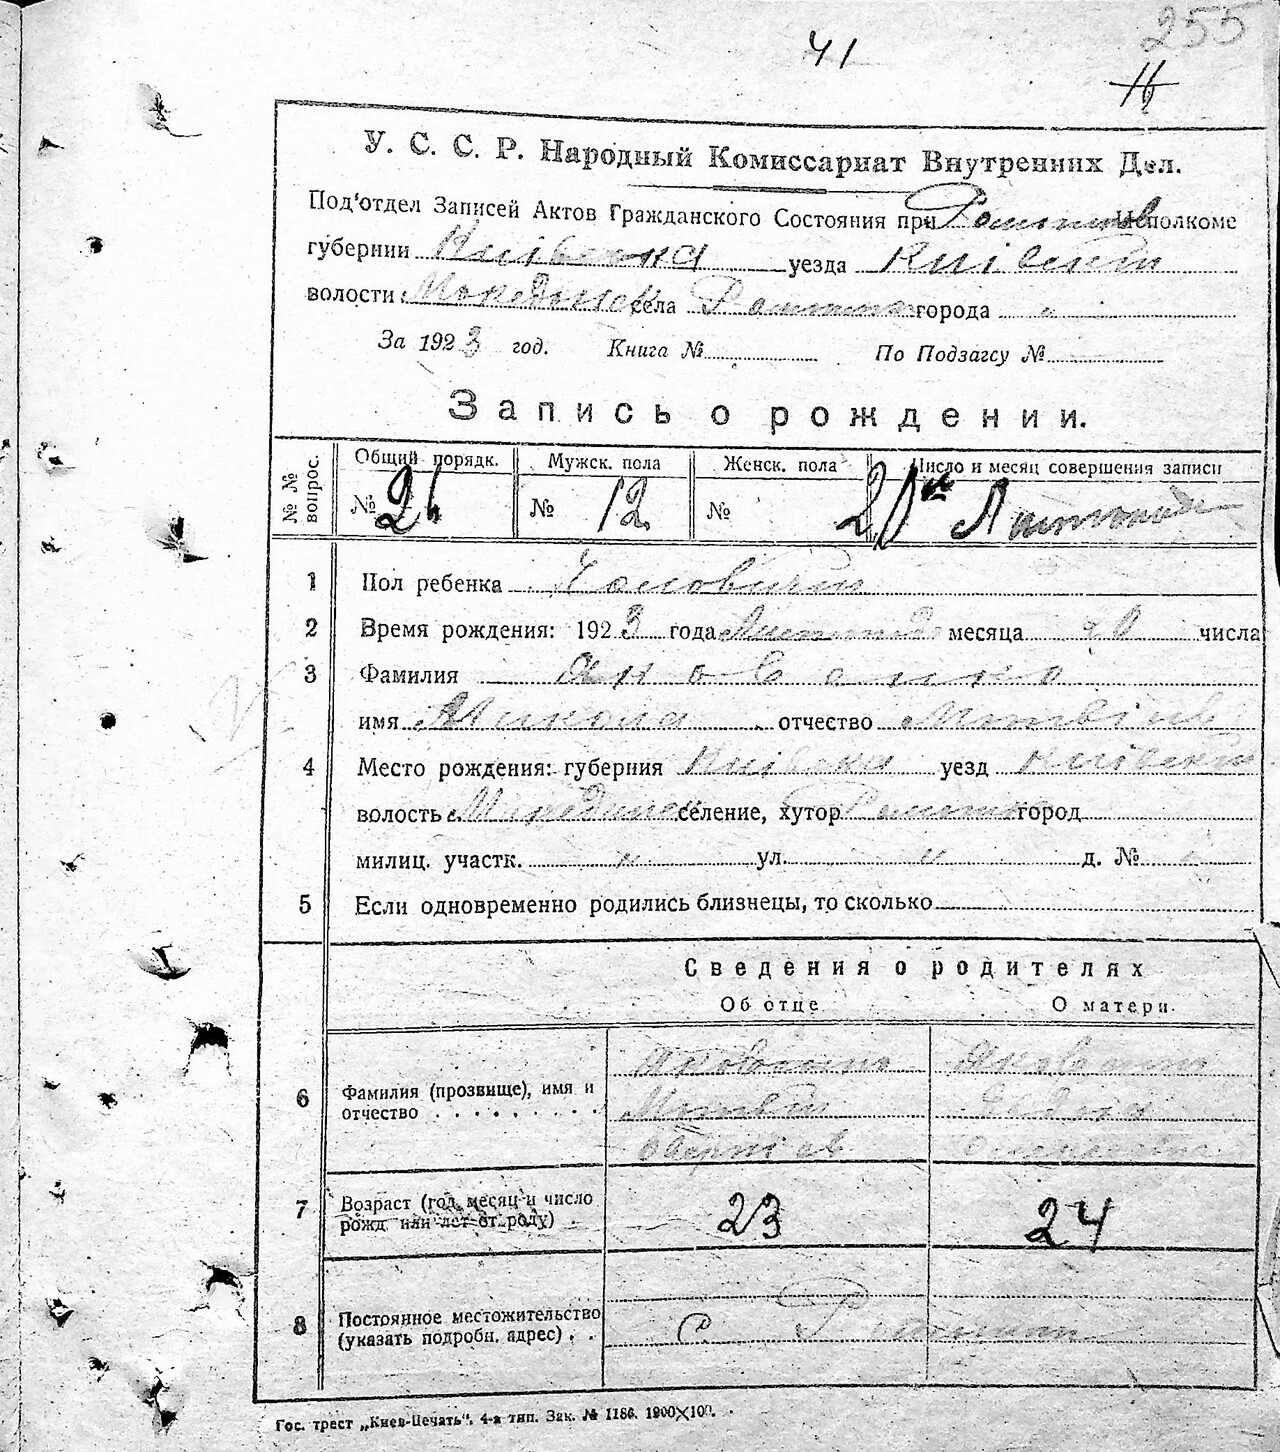 255
41
16
У. С. С. Р. Народный Комиссариат Внутренних Дел.
Под'отдел Записей Актов Гражданского Состояния при Исполкоме
губернии Київська уезда Київськ
волости села города "
За 1923 год. Книга № По Подзагсу №
Запись о рождении.
№№ вопрос. Общий порядк. Мужск. пола Женск. пола Число и месяц совершения записи
№ № 12 № 20 Листопада
1 Пол ребенка Чоловичий
2 Время рождения: 1923 года Листопада месяца 20 числа
3 Фамилия Яковенко
имя Микола отчество
4 Место рождения: губерния Київска уезд Київськ
волость селение, хутор город
милиц. участк. " ул. " д. № "
5 Если одновременно родились близнецы, то сколько
Сведения о родителях
Об отце О матери.
6 Фамилия (прозвище), имя и отчество
Яковенко Яковенко
7 Возраст (год, месяц и число рожд. или лет от роду) 23 24
8 Постоянное местожительство (указать подробн. адрес) С.
Гос. трест „Киев-Печать". 4-я тип. Зак. № 1186. 1900×100.